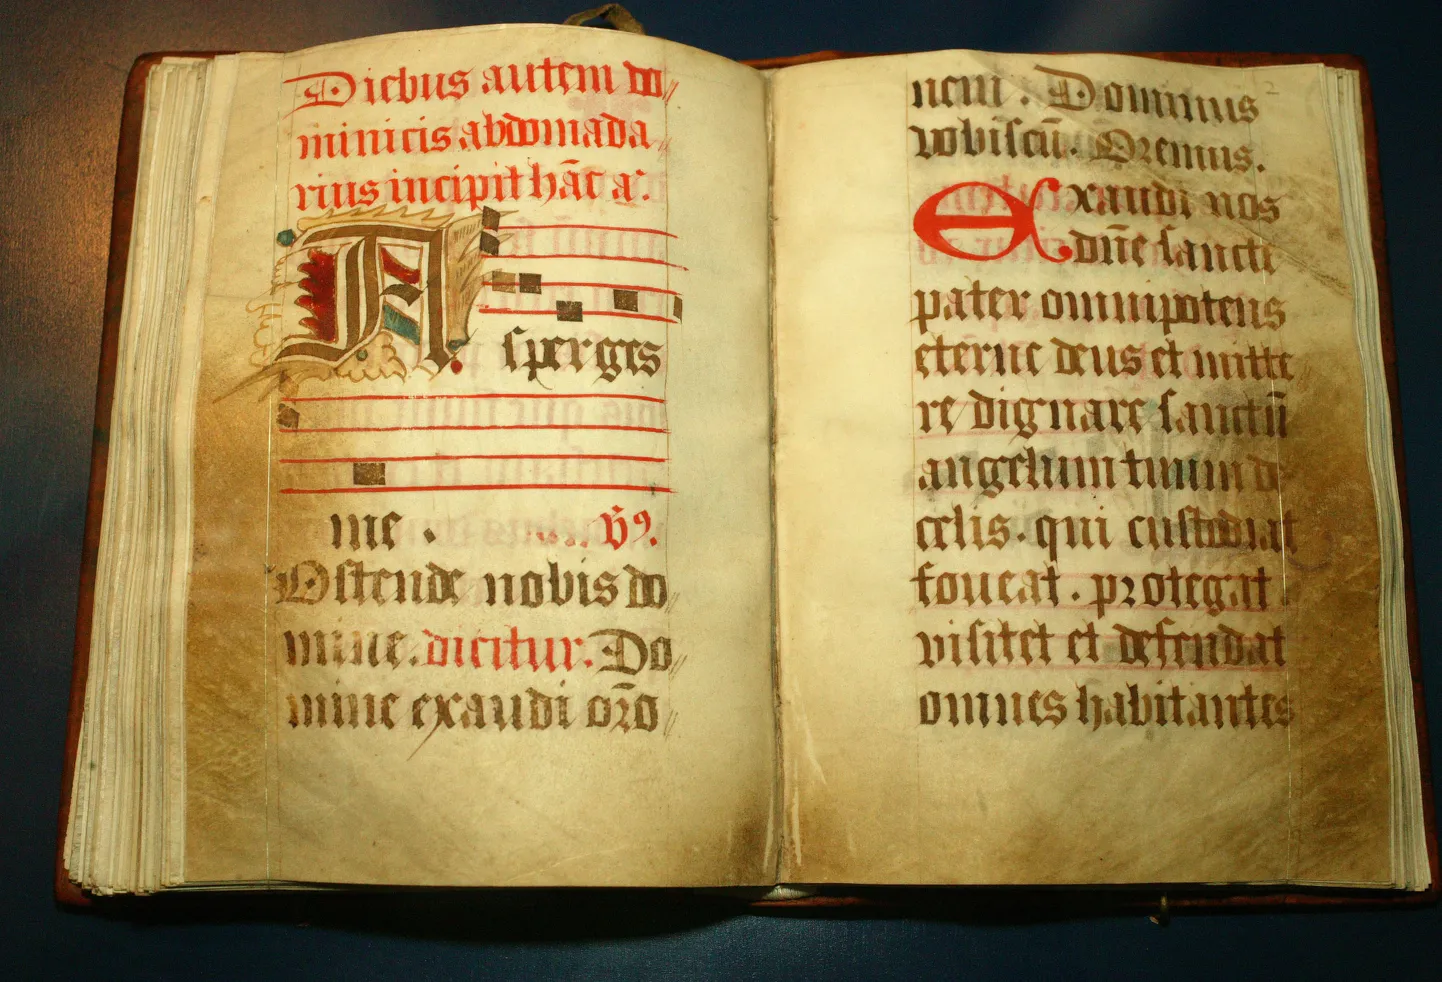 Diebus autem do
minicis abdomada
rius incipit hāc a.
Asperges
me . 
Ostende nobis do
mine. dicitur. Do
mine exaudi orō
nem . Dominus 2
vobiscū. Oremus.
Exaudi nos
dn̄e sancte
pater omnipotens
eterne deus et mitte
re dignare sanctū
angelum tuum de
celis . qui custodiat
foueat . protegat
visitet et defendat
omnes habitantes